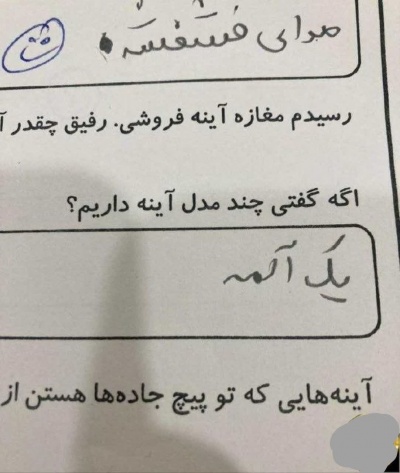 صدای فسفسه
رسیدم مغازه آینه فروشی. رفیق چقدر آ
اگه گفتی چند مدل آینه داریم؟
یک آلمه
آینه‌هایی که تو پیچ جاده‌ها هستن از